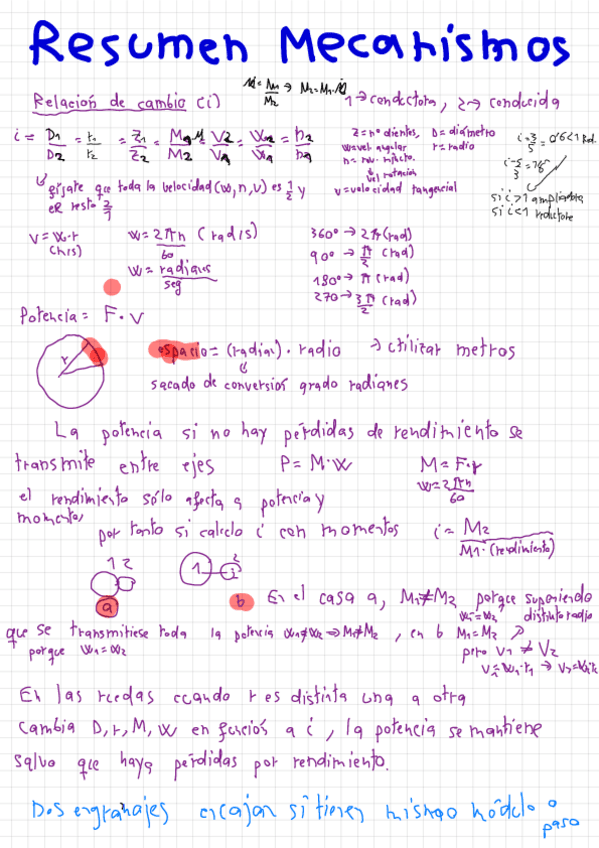 Resumen Mecanismos
Relación de cambio (i)
1→conductora, 2→ conducida
i = D1/D2 = r1/r2 = Z1/Z2 = = V2/V1 = =
Z = nº dientes, D = diámetro
w = vel angular r = radio
vel rotacion
v = velocidad tangencial
fijate que toda la velocidad (w, n, v) es 1/2 y
el resto 2/1
si i>1
si i<1
V = w·r
w = 2πn/60 (rad/s)
w = radianes/seg
360º → 2π (rad)
90º → π/2 (rad)
180º → π (rad)
270 → 3π/2 (rad)
Potencia = F·v
r
espacio = (radian) · radio → utilizar metros
sacado de conversión grado radianes
La potencia si no hay pérdidas de rendimiento se
transmite entre ejes P = M·W M = F·r
w = 2πn/60
el rendimiento sólo afecta a potencia y
momentos
por tanto si calculo i con momentos i = M2/M1·(rendimiento)
1 2
1 2
a
b En el casa a, M1≠M2 porque suponiendo
w1=w2 distinto radio
que se transmitiese toda la potencia w1≠w2 → M1≠M2, en b M1=M2
porque w1=w2
pero V1 ≠ V2
En las ruedas cuando r es distinta una a otra
cambia D, r, M, W en función a i, la potencia se mantiene
salvo que haya pérdidas por rendimiento.
Dos engranajes encajan si tienen mismo módulo o
paso